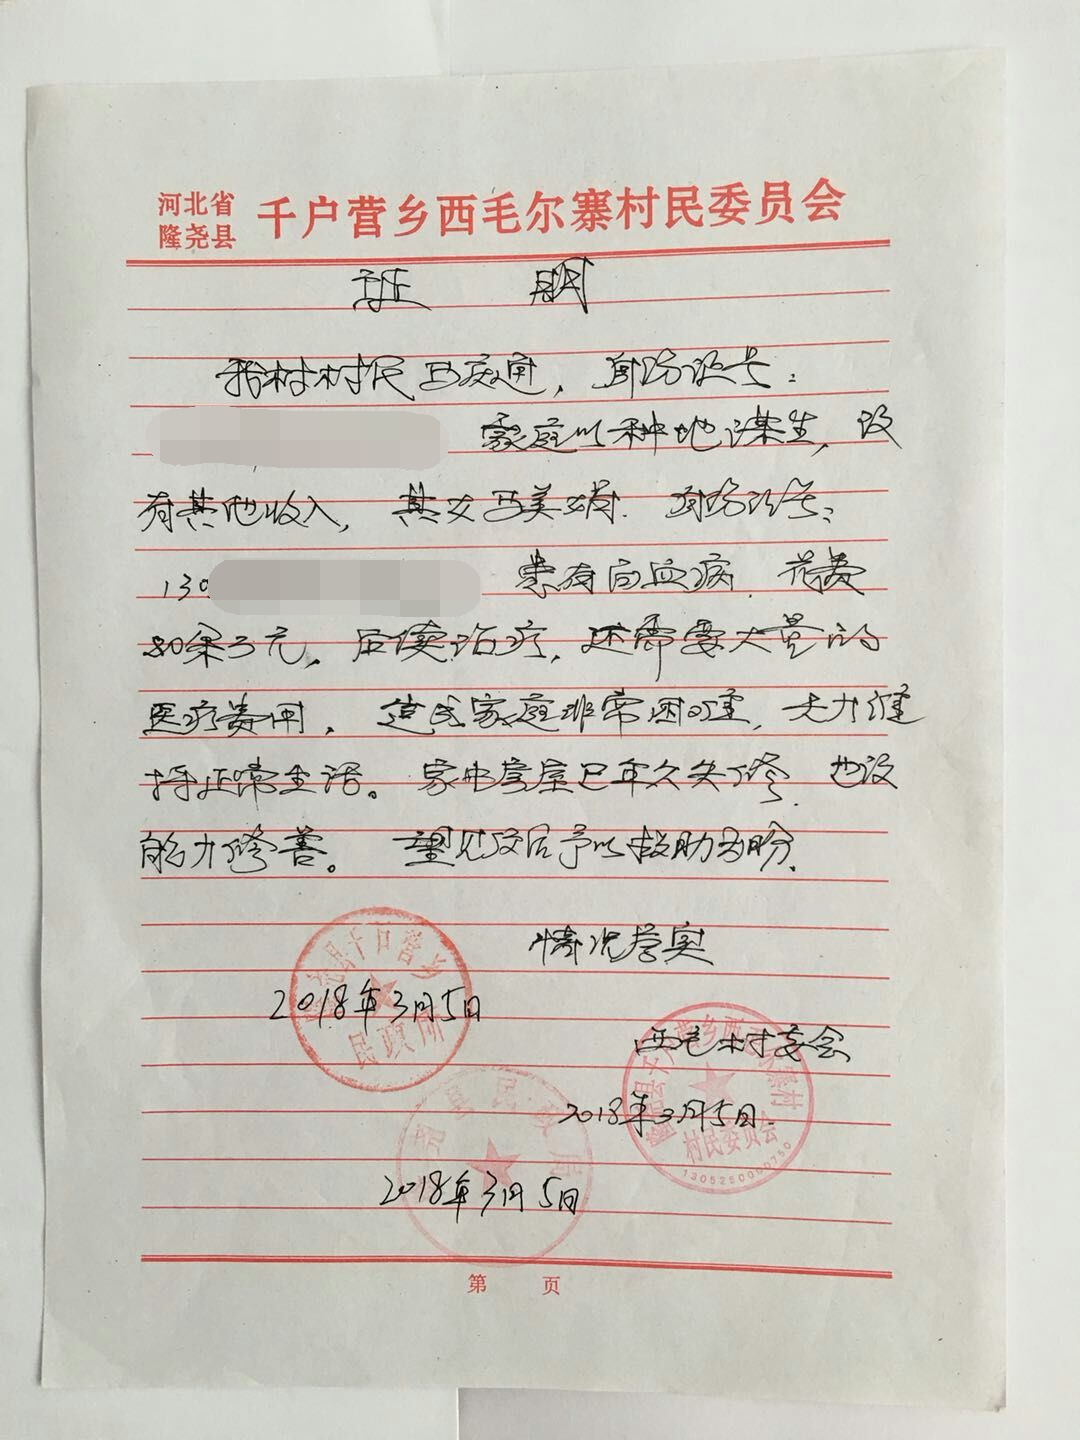 河北省
隆尧县
千户营乡西毛尔寨村民委员会
证 明
我村村民马庆通，身份证号：
家庭以种地谋生，没
有其他收入，其女马美娟，身份证号：
130
患有白血病，花费
80余万元，后续治疗，还需要大量的
医疗费用，造成家庭非常困难，无力维
持正常生活。家中房屋已年久失修，也没
能力修善。望见文后予以救助为盼。
情况属实
隆尧县千户营乡
民政所
2018年3月5日
西毛村委会
隆尧县千户营乡西毛尔寨村
村民委员会
1305250000750
2018年3月5日
尧县民政局
2018年3月5日
第 页